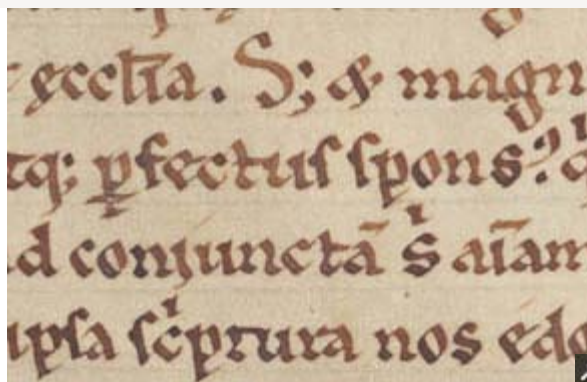 ęccl̄ia. S; & magn
tq; ꝑfectus sponsꝰ.
d conjunctā sͥ aīam
ipsa scͥptura nos edo